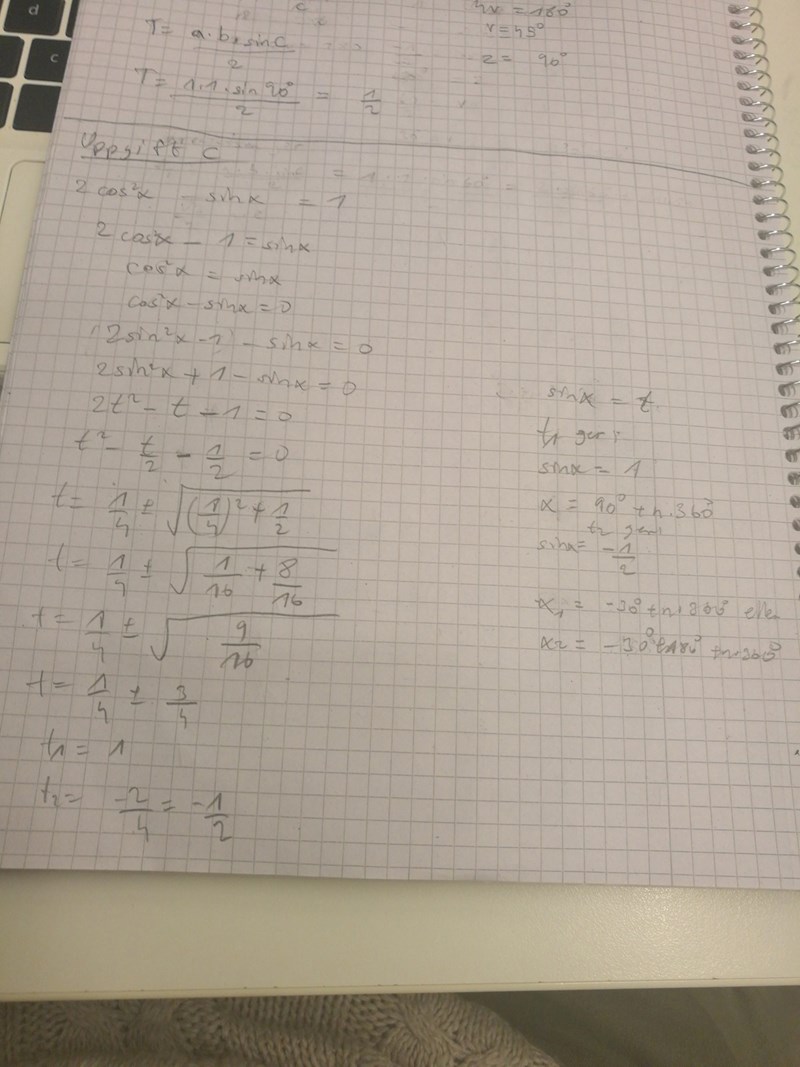 d
c
T = a·b·sin C / 2
T = 1·1·sin 90° / 2 = 1/2
4x = 180°
v = 45°
z = 90°
Uppgift C
2 cos²x - sin x = 1
2 cos²x - 1 = sin x
cos²x = sin x
cos²x - sin x = 0
(2 sin²x - 1) - sin x = 0
2 sin²x + 1 - sin x = 0
2t² - t - 1 = 0
t² - t/2 - 1/2 = 0
t = 1/4 ± √((1/4)² + 1/2)
t = 1/4 ± √(1/16 + 8/16)
t = 1/4 ± √(9/16)
t = 1/4 ± 3/4
t₁ = 1
t₂ = -2/4 = -1/2
sin x = t
t₁ ger:
sin x = 1
x = 90° + n·360°
t₂ ger:
sin x = -1/2
x₁ = -30° + n·360° eller
x₂ = -30° + n·360°